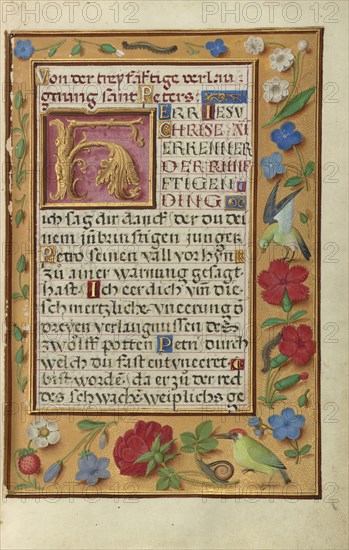 Von der treyfaftige verlau-
gnung sant Peters.
HERR IESU
CHRISE XI
ERRENNER
DER RUNF
FTIGEN
DING
ich sag dir danck der du dei
nem inbrinstigen junger
Petro seinen vall vorhyn
zu ainer warnung gesagt
hast. Ich eer dich vm die
schmertzliche vneerung d
dreyen verlaugnussen des
zwolff potten Petri durch
welch du fast entuneeret
bist worde da er zu der red
des schwachen weiplichs ge